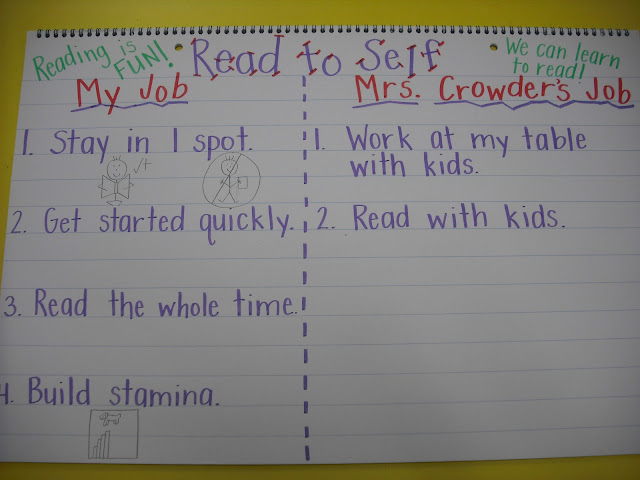 Reading is
FUN!
Read to Self
We can learn
to read!
My Job
1. Stay in 1 spot.
2. Get started quickly.
3. Read the whole time.
4. Build stamina.
Mrs. Crowder's Job
1. Work at my table
with kids.
2. Read with kids.